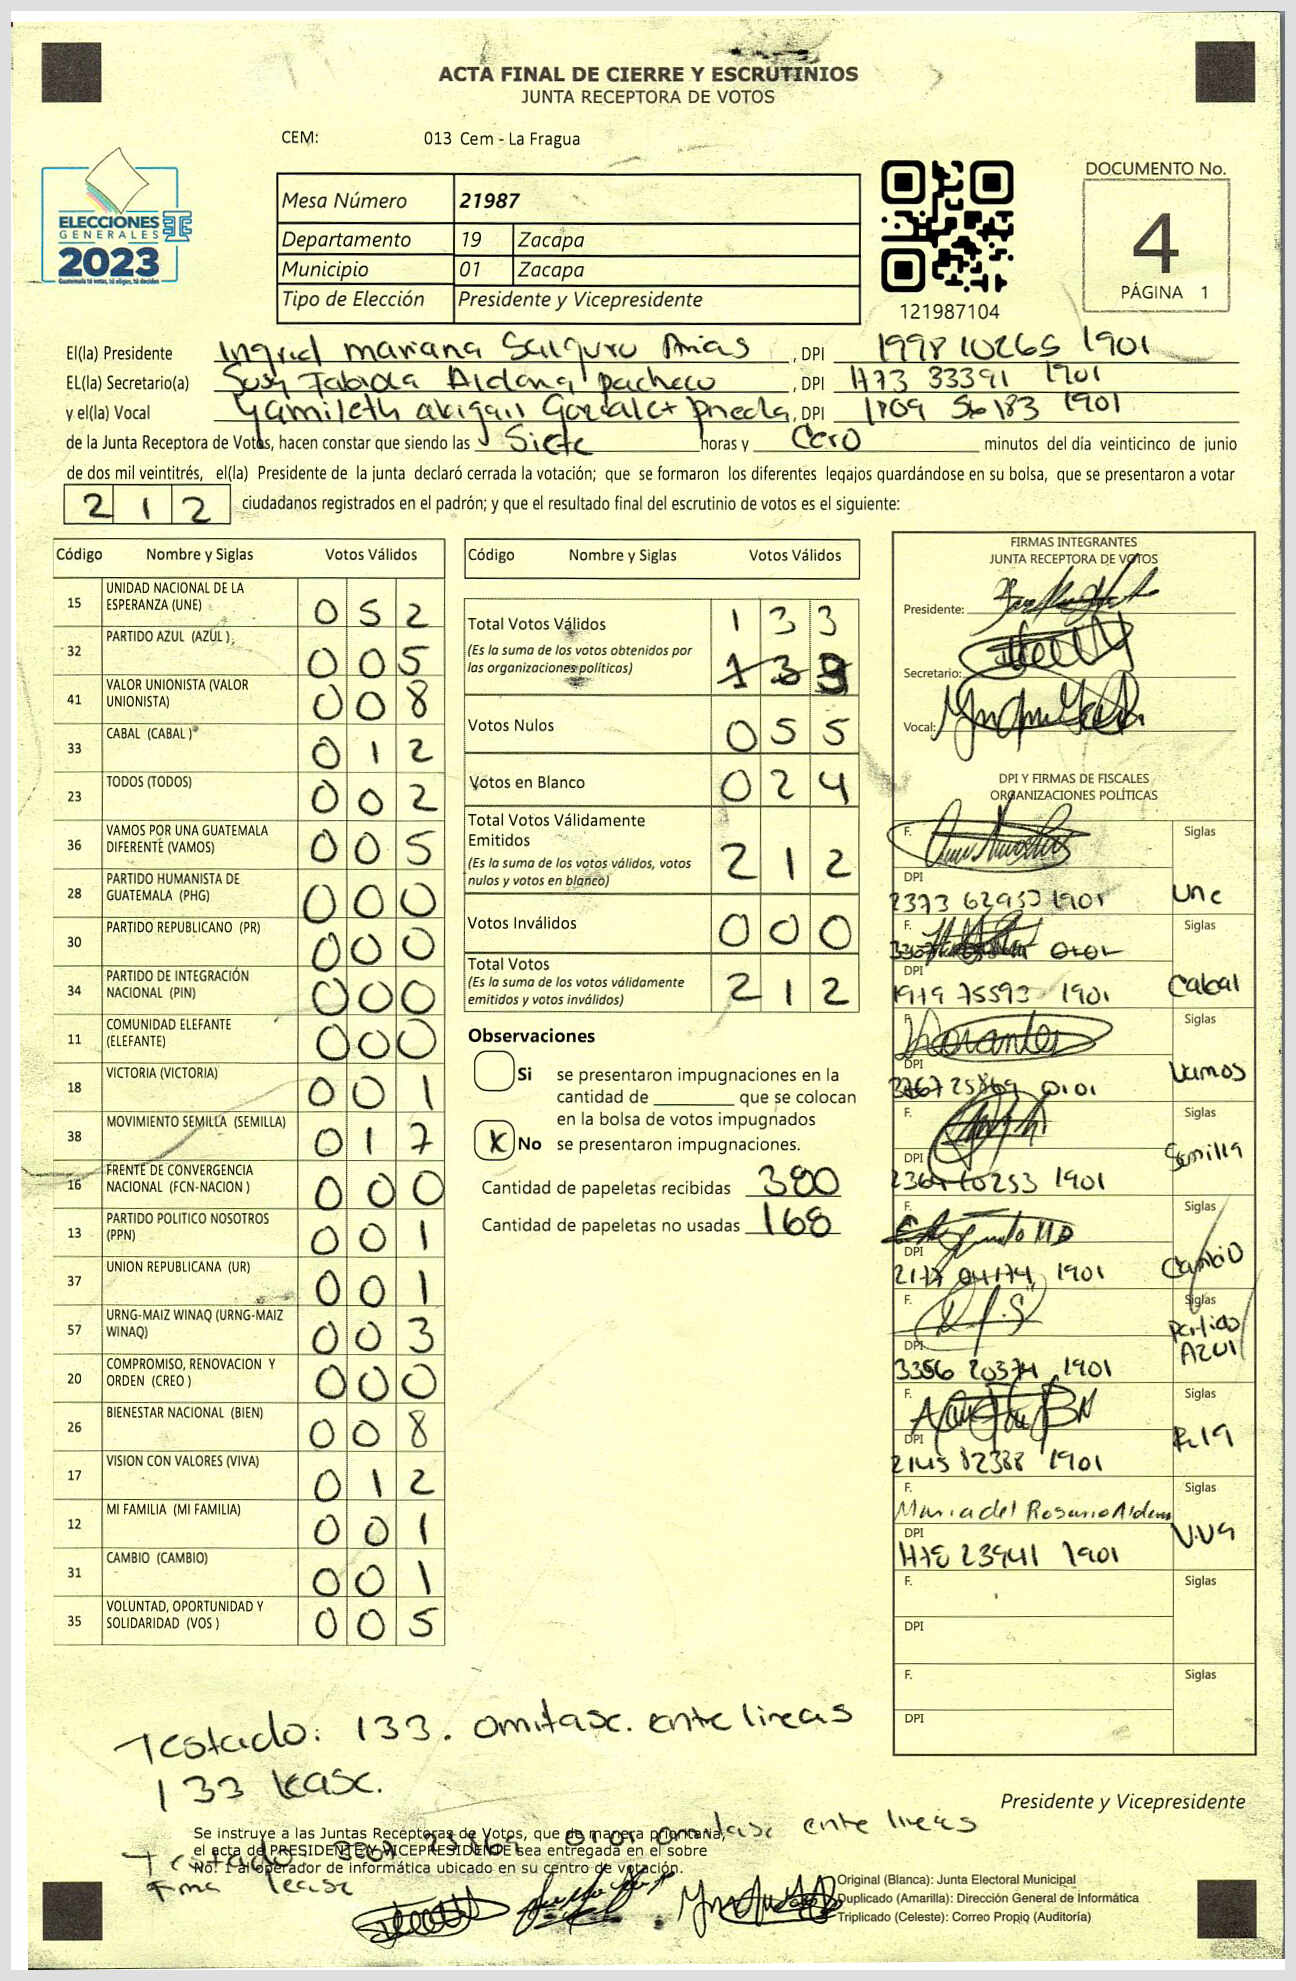 ACTA FINAL DE CIERRE Y ESCRUTINIOS
JUNTA RECEPTORA DE VOTOS
CEM: 013 Cem - La Fragua
ELECCIONES
GENERALES
2023
Mesa Número 21987
Departamento 19 Zacapa
Municipio 01 Zacapa
Tipo de Elección Presidente y Vicepresidente
121987104
DOCUMENTO No.
4
PÁGINA 1
El(la) Presidente Ingrid Mariana Salguro Arias , DPI 1998 10265 1901
EL(la) Secretario(a) Susy Fabiola Aldana pacheco , DPI 1773 33391 1901
y el(la) Vocal Yamileth abigail Gonzalez Pineda, DPI 1809 56183 1901
de la Junta Receptora de Votos, hacen constar que siendo las Siete horas y Cero minutos del día veinticinco de junio
de dos mil veintitrés, el(la) Presidente de la junta declaró cerrada la votación; que se formaron los diferentes legajos guardándose en su bolsa, que se presentaron a votar
212 ciudadanos registrados en el padrón; y que el resultado final del escrutinio de votos es el siguiente:
Código Nombre y Siglas Votos Válidos
15 UNIDAD NACIONAL DE LA ESPERANZA (UNE) 052
32 PARTIDO AZUL (AZUL) 005
41 VALOR UNIONISTA (VALOR UNIONISTA) 008
33 CABAL (CABAL) 012
23 TODOS (TODOS) 002
36 VAMOS POR UNA GUATEMALA DIFERENTE (VAMOS) 005
28 PARTIDO HUMANISTA DE GUATEMALA (PHG) 000
30 PARTIDO REPUBLICANO (PR) 000
34 PARTIDO DE INTEGRACIÓN NACIONAL (PIN) 000
11 COMUNIDAD ELEFANTE (ELEFANTE) 000
18 VICTORIA (VICTORIA) 001
38 MOVIMIENTO SEMILLA (SEMILLA) 017
16 FRENTE DE CONVERGENCIA NACIONAL (FCN-NACION) 000
13 PARTIDO POLITICO NOSOTROS (PPN) 001
37 UNION REPUBLICANA (UR) 001
57 URNG-MAIZ WINAQ (URNG-MAIZ WINAQ) 003
20 COMPROMISO, RENOVACION Y ORDEN (CREO) 000
26 BIENESTAR NACIONAL (BIEN) 008
17 VISION CON VALORES (VIVA) 012
12 MI FAMILIA (MI FAMILIA) 001
31 CAMBIO (CAMBIO) 001
35 VOLUNTAD, OPORTUNIDAD Y SOLIDARIDAD (VOS) 005
Código Nombre y Siglas Votos Válidos
Total Votos Válidos 133
(Es la suma de los votos obtenidos por
las organizaciones politicas)
Votos Nulos 055
Votos en Blanco 024
Total Votos Válidamente
Emitidos 212
(Es la suma de los votos válidos, votos
nulos y votos en blanco)
Votos Inválidos 000
Total Votos 212
(Es la suma de los votos válidamente
emitidos y votos inválidos)
Observaciones
Si se presentaron impugnaciones en la
cantidad de ________ que se colocan
en la bolsa de votos impugnados
X No se presentaron impugnaciones.
Cantidad de papeletas recibidas 380
Cantidad de papeletas no usadas 168
FIRMAS INTEGRANTES
JUNTA RECEPTORA DE VOTOS
Presidente:
Secretario:
Vocal:
DPI Y FIRMAS DE FISCALES
ORGANIZACIONES POLÍTICAS
F. Siglas
DPI
2373 62953 1901 Une
F. Siglas
DPI
1979 75593 1901 Cabal
F. Siglas
DPI
3767 25869 0101 Vamos
F. Siglas
DPI
2364 10253 1901 Semilla
F. Siglas
DPI
2177 04174 1901 Cambio
F. Siglas
DPI
3356 20374 1901 Partido AZUL
F. Siglas
DPI
2145 82388 1901
F. Maria del Rosario Aldana Siglas
DPI
1178 23941 1901
F. Siglas
DPI
F. Siglas
DPI
Testado: 133. omitase. entre lineas
133 lease.
Presidente y Vicepresidente
Se instruye a las Juntas Receptoras de Votos, que de manera prioritaria,
el acta de PRESIDENTE Y VICEPRESIDENTE sea entregada en el sobre
No. 1 al operador de informática ubicado en su centro de votación.
Testado 25869 0101 omitase entre lineas
Firma lease
Original (Blanca): Junta Electoral Municipal
Duplicado (Amarilla): Dirección General de Informática
Triplicado (Celeste): Correo Propio (Auditoría)